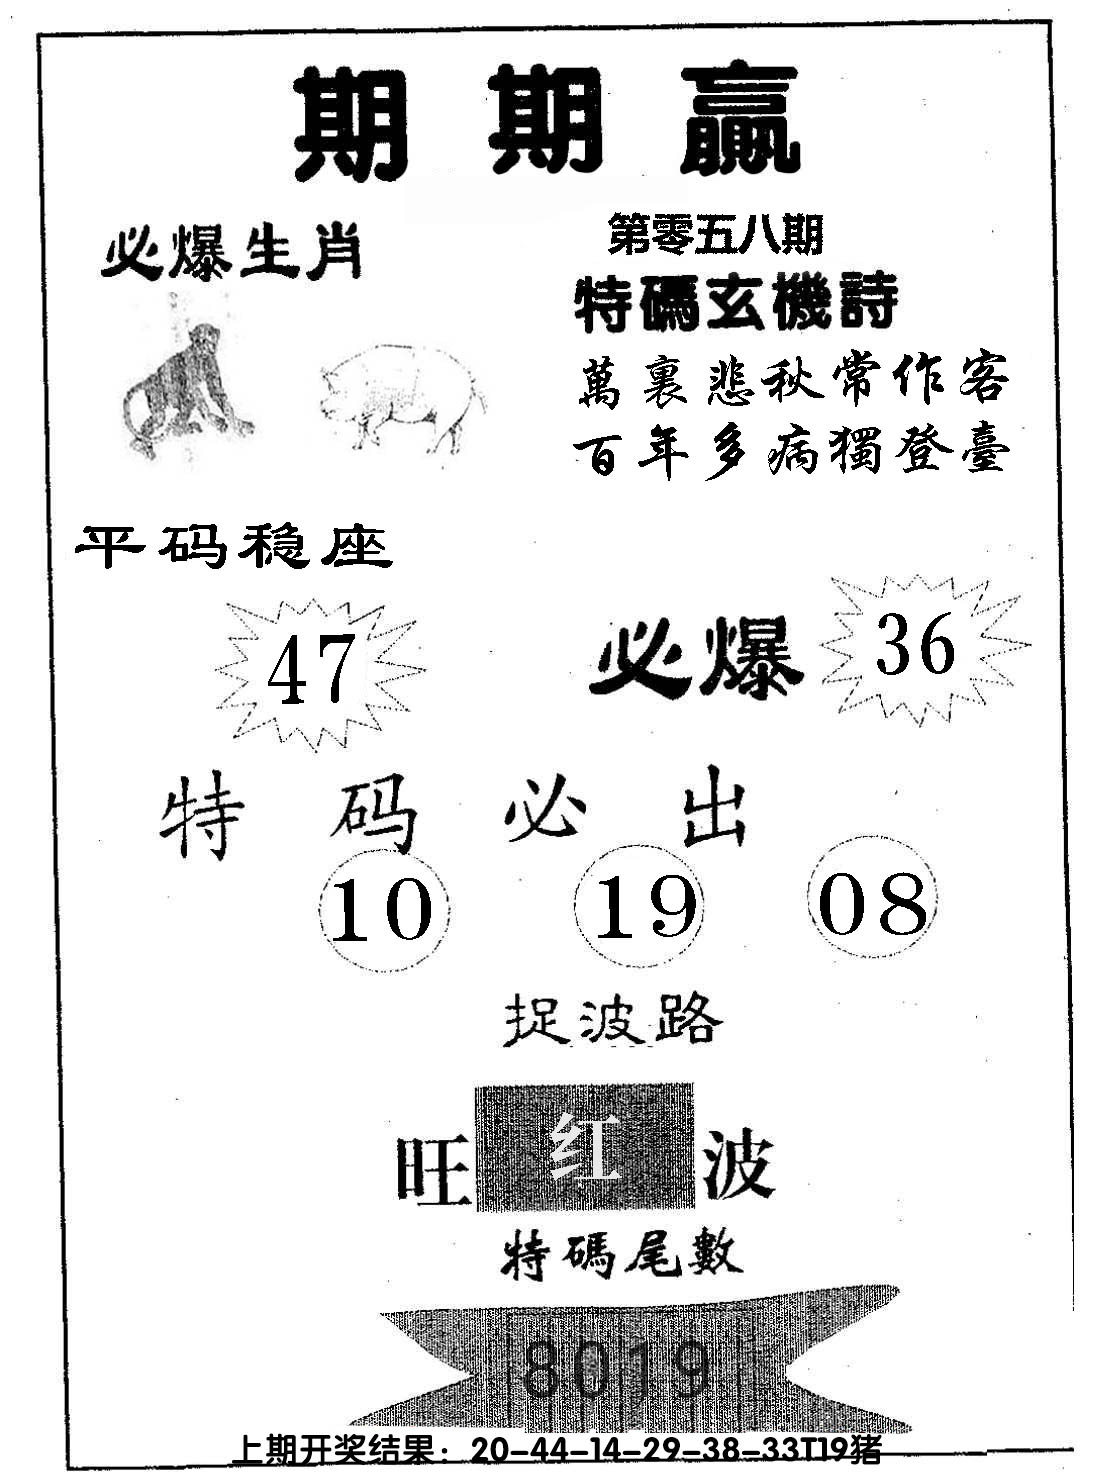 期期贏
必爆生肖
第零五八期
特碼玄機詩
萬裏悲秋常作客
百年多病獨登臺
平码稳座
47
必爆 36
特码必出
10 19 08
捉波路
旺红波
特碼尾數
8019
上期开奖结果：20-44-14-29-38-33T19猪